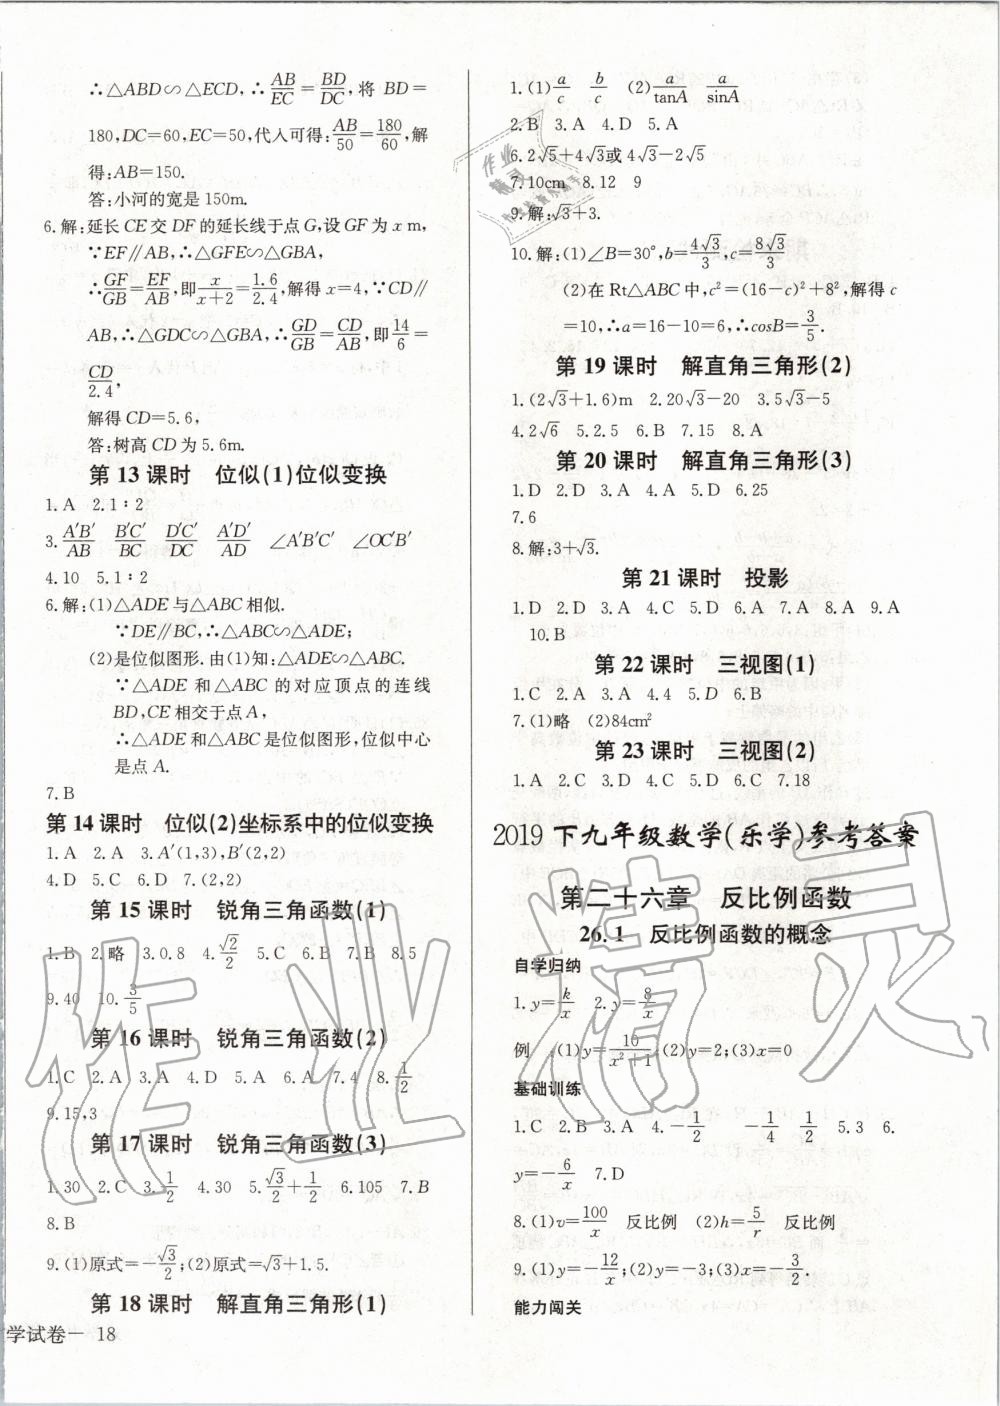 ∴△ABD∽△ECD,∴AB/EC=BD/DC,将 BD=
180,DC=60,EC=50,代入可得:AB/50=180/60,解
得:AB=150.
答:小河的宽是150m.
6.解:延长CE交DF的延长线于点G,设GF为x m,
∵EF∥AB,∴△GFE∽△GBA,
∴GF/GB=EF/AB,即x/(x+2)=1.6/2.4,解得x=4,∵CD∥
AB,∴△GDC∽△GBA,∴GD/GB=CD/AB,即14/6=
CD/2.4,
解得CD=5.6,
答:树高CD为5.6m.
第13课时 位似(1)位似变换
1.A 2.1∶2
3.A′B′/AB B′C′/BC D′C′/DC A′D′/AD ∠A′B′C′ ∠OC′B′
4.10 5.1∶2
6.解:(1)△ADE与△ABC相似.
∵DE∥BC,∴△ABC∽△ADE;
(2)是位似图形.由(1)知:△ADE∽△ABC.
∵△ADE和△ABC的对应顶点的连线
BD,CE相交于点A,
∴△ADE和△ABC是位似图形,位似中心
是点A.
7.B
第14课时 位似(2)坐标系中的位似变换
1.A 2.A 3.A′(1,3),B′(2,2)
4.D 5.C 6.D 7.(2,2)
第15课时 锐角三角函数(1)
1.B 2.略 3.0.8 4.√2/2 5.C 6.B 7.B 8.5
9.40 10.3/5
第16课时 锐角三角函数(2)
1.C 2.A 3.A 4.D 5.C 6.A 7.4 8.1/2
9.15,3
第17课时 锐角三角函数(3)
1.30 2.C 3.1/2 4.30 5.√3/2+1/2 6.105 7.B
8.B
9.(1)原式=-√3/2;(2)原式=√3+1.5.
第18课时 解直角三角形(1)
学试卷— 18
1.(1)a/c b/c (2)a/tanA a/sinA
2.B 3.A 4.D 5.A
6.2√5+4√3或4√3-2√5
7.10cm 8.12 9
9.解:√3+3.
10.解:(1)∠B=30°,b=4√3/3,c=8√3/3
(2)在Rt△ABC中,c²=(16-c)²+8²,解得c
=10,∴a=16-10=6,∴cosB=3/5.
第19课时 解直角三角形(2)
1.(2√3+1.6)m 2.20√3-20 3.5√3-5
4.2√6 5.2.5 6.B 7.15 8.A
第20课时 解直角三角形(3)
1.D 2.D 3.A 4.A 5.D 6.25
7.6
8.解:3+√3.
第21课时 投影
1.D 2.D 3.A 4.C 5.D 6.A 7.A 8.A 9.A
10.B
第22课时 三视图(1)
1.C 2.A 3.A 4.4 5.D 6.B
7.(1)略 (2)84cm²
第23课时 三视图(2)
1.A 2.C 3.D 4.C 5.D 6.C 7.18
2019下九年级数学(乐学)参考答案
第二十六章 反比例函数
26.1 反比例函数的概念
自学归纳
1.y=k/x 2.y=8/x
例 (1)y=10/(x²+1);(2)y=2;(3)x=0
基础训练
1.C 2.B 3.A 4.-1/2 -1/4 1/2 5.3 6.
y=-6/x 7.D
8.(1)v=100/x 反比例 (2)h=5/r 反比例
9.(1)y=-12/x;(2)y=-3;(3)x=-3/2.
能力闯关
作业精灵